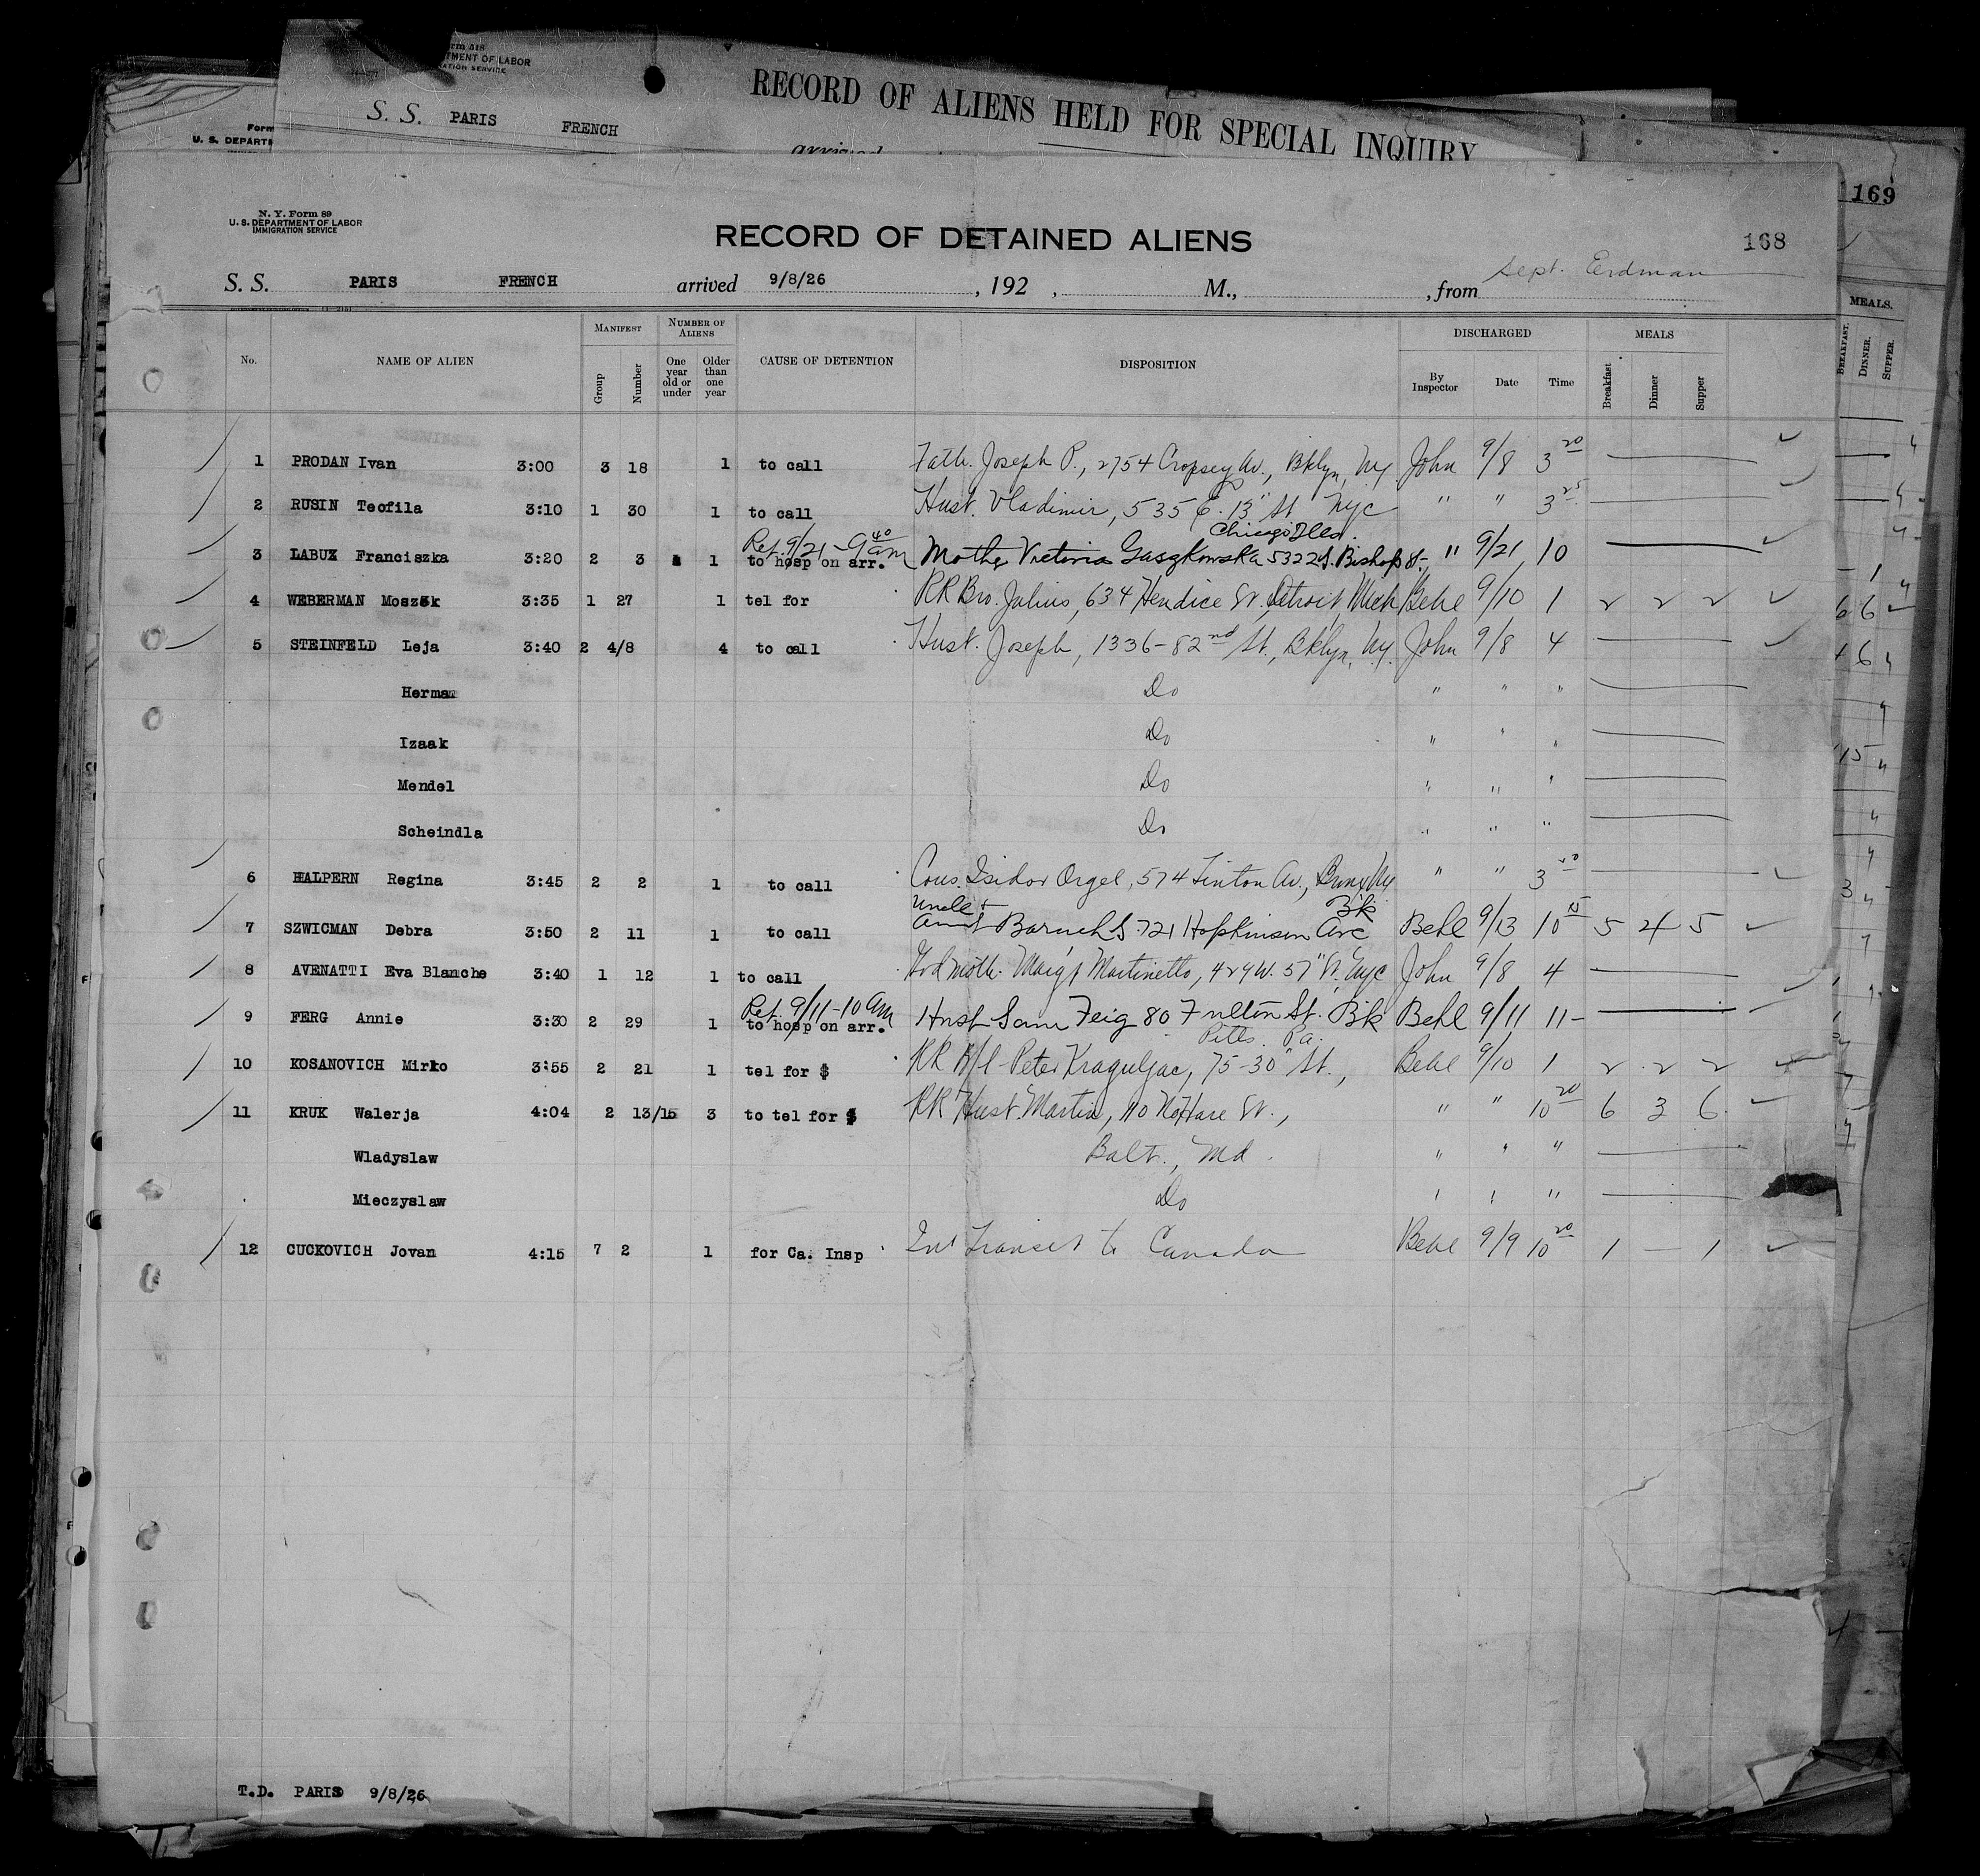 Form 518
TMENT OF LABOR
ATION SERVICE
RECORD OF ALIENS HELD FOR SPECIAL INQUIRY
S. S. PARIS FRENCH
Form
U. S. DEPARTM
arrived
169
N. Y. Form 89
U. S. DEPARTMENT OF LABOR
IMMIGRATION SERVICE
RECORD OF DETAINED ALIENS
168
S. S. PARIS FRENCH arrived 9/8/26, 192 , M., , from Sept. Erdman
MEALS.
BREAKFAST. DINNER. SUPPER.
No. NAME OF ALIEN MANIFEST Group Number NUMBER OF ALIENS One year old or under Older than one year CAUSE OF DETENTION DISPOSITION DISCHARGED By Inspector Date Time MEALS Breakfast Dinner Supper
1 PRODAN Ivan 3:00 3 18 1 to call Fath. Joseph P., 2754 Cropsey Av., Bklyn, Ny John 9/8 3 20
2 RUSIN Teofila 3:10 1 30 1 to call Husb. Vladimir, 535 E. 13" St Nyc " " 3 25
Ret. 9/21 - 9 40 am Chicago Ills.
3 LABUZ Franciszka 3:20 2 3 1 to hosp on arr. Mother Victoria Gaszkowska 5322 S. Bishop St. " 9/21 10
4 WEBERMAN Moszek 3:35 1 27 1 tel for RR Bro. Julius, 634 Hendice St. Detroit, Mich Behl 9/10 1 2 2 2
5 STEINFELD Leja 3:40 2 4/8 4 to call Husb. Joseph, 1336-82nd St., Bklyn, Ny. John 9/8 4
Herman Do " " "
Izaak Do " " "
Mendel Do " " "
Scheindla Do " " "
6 HALPERN Regina 3:45 2 2 1 to call Cous. Isidor Orgel, 574 Tinton Av., Bronx Ny " " 3 50
Uncle + Bk
7 SZWICMAN Debra 3:50 2 11 1 to call Aunt Baruch S. 721 Hopkinson Ave Behl 9/13 10 15 5 4 5
8 AVENATTI Eva Blanche 3:40 1 12 1 to call Godmoth. Marg't Martinetto, 429 W. 57" St. Nyc John 9/8 4
Ret. 9/11-10 am
9 FERG Annie 3:30 2 29 1 to hosp on arr. Husb Sam Feig 80 Fulton St. Bk Behl 9/11 11-
Pitts. Pa.
10 KOSANOVICH Mirko 3:55 2 21 1 tel for $ RR Peter Kraguljac, 75-30" St., Behl 9/10 1 2 2 2
11 KRUK Walerja 4:04 2 13/15 3 to tel for $ RR Husb. Martin, St., " " 10 20 6 3 6
Wladyslaw Balt., Md. " " "
Mieczyslaw Do " " "
12 CUCKOVICH Jovan 4:15 7 2 1 for Ca. Insp In Transit to Canada Behl 9/9 10 20 1 — 1
T.D. PARIS 9/8/26